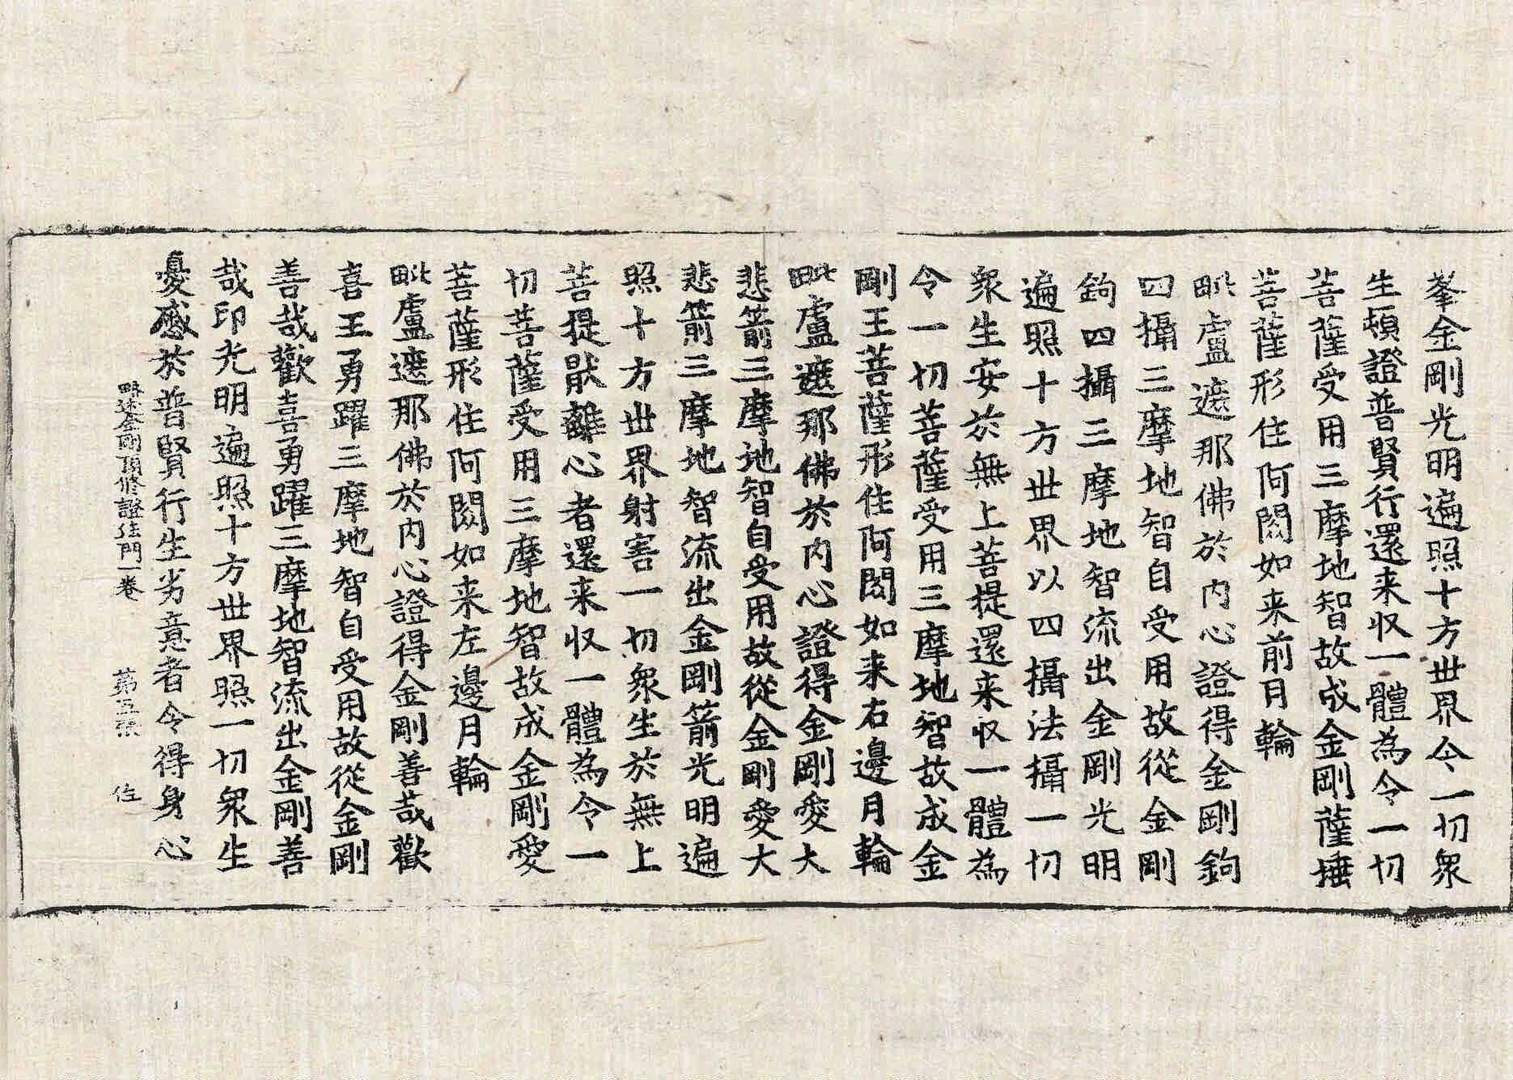 峯金剛光明遍照十方世界令一切衆
生頓證普賢行還来收一體為令一切
菩薩受用三摩地智故成金剛薩埵
菩薩形住阿閦如来前月輪
毗盧遮那佛於内心證得金剛鉤
四攝三摩地智自受用故從金剛
鉤四攝三摩地智流出金剛光明
遍照十方世界以四攝法攝一切
衆生安於無上菩提還来収一體為
令一切菩薩受用三摩地智故成金
剛王菩薩形住阿閦如来右邊月輪
毗盧遮那佛於内心證得金剛愛大
悲箭三摩地智自受用故從金剛愛大
悲箭三摩地智流出金剛箭光明遍
照十方世界射害一切衆生於無上
菩提猒離心者還来収一體為令一
切菩薩受用三摩地智故成金剛愛
菩薩形住阿閦如来左邊月輪
毗盧遮那佛於内心證得金剛善哉歡
喜王勇躍三摩地智自受用故從金剛
善哉歡喜勇躍三摩地智流出金剛善
哉印光明遍照十方世界照一切衆生
憂慼於普賢行生劣意者令得身心
略述金剛頂修證法門一卷 第五張 住